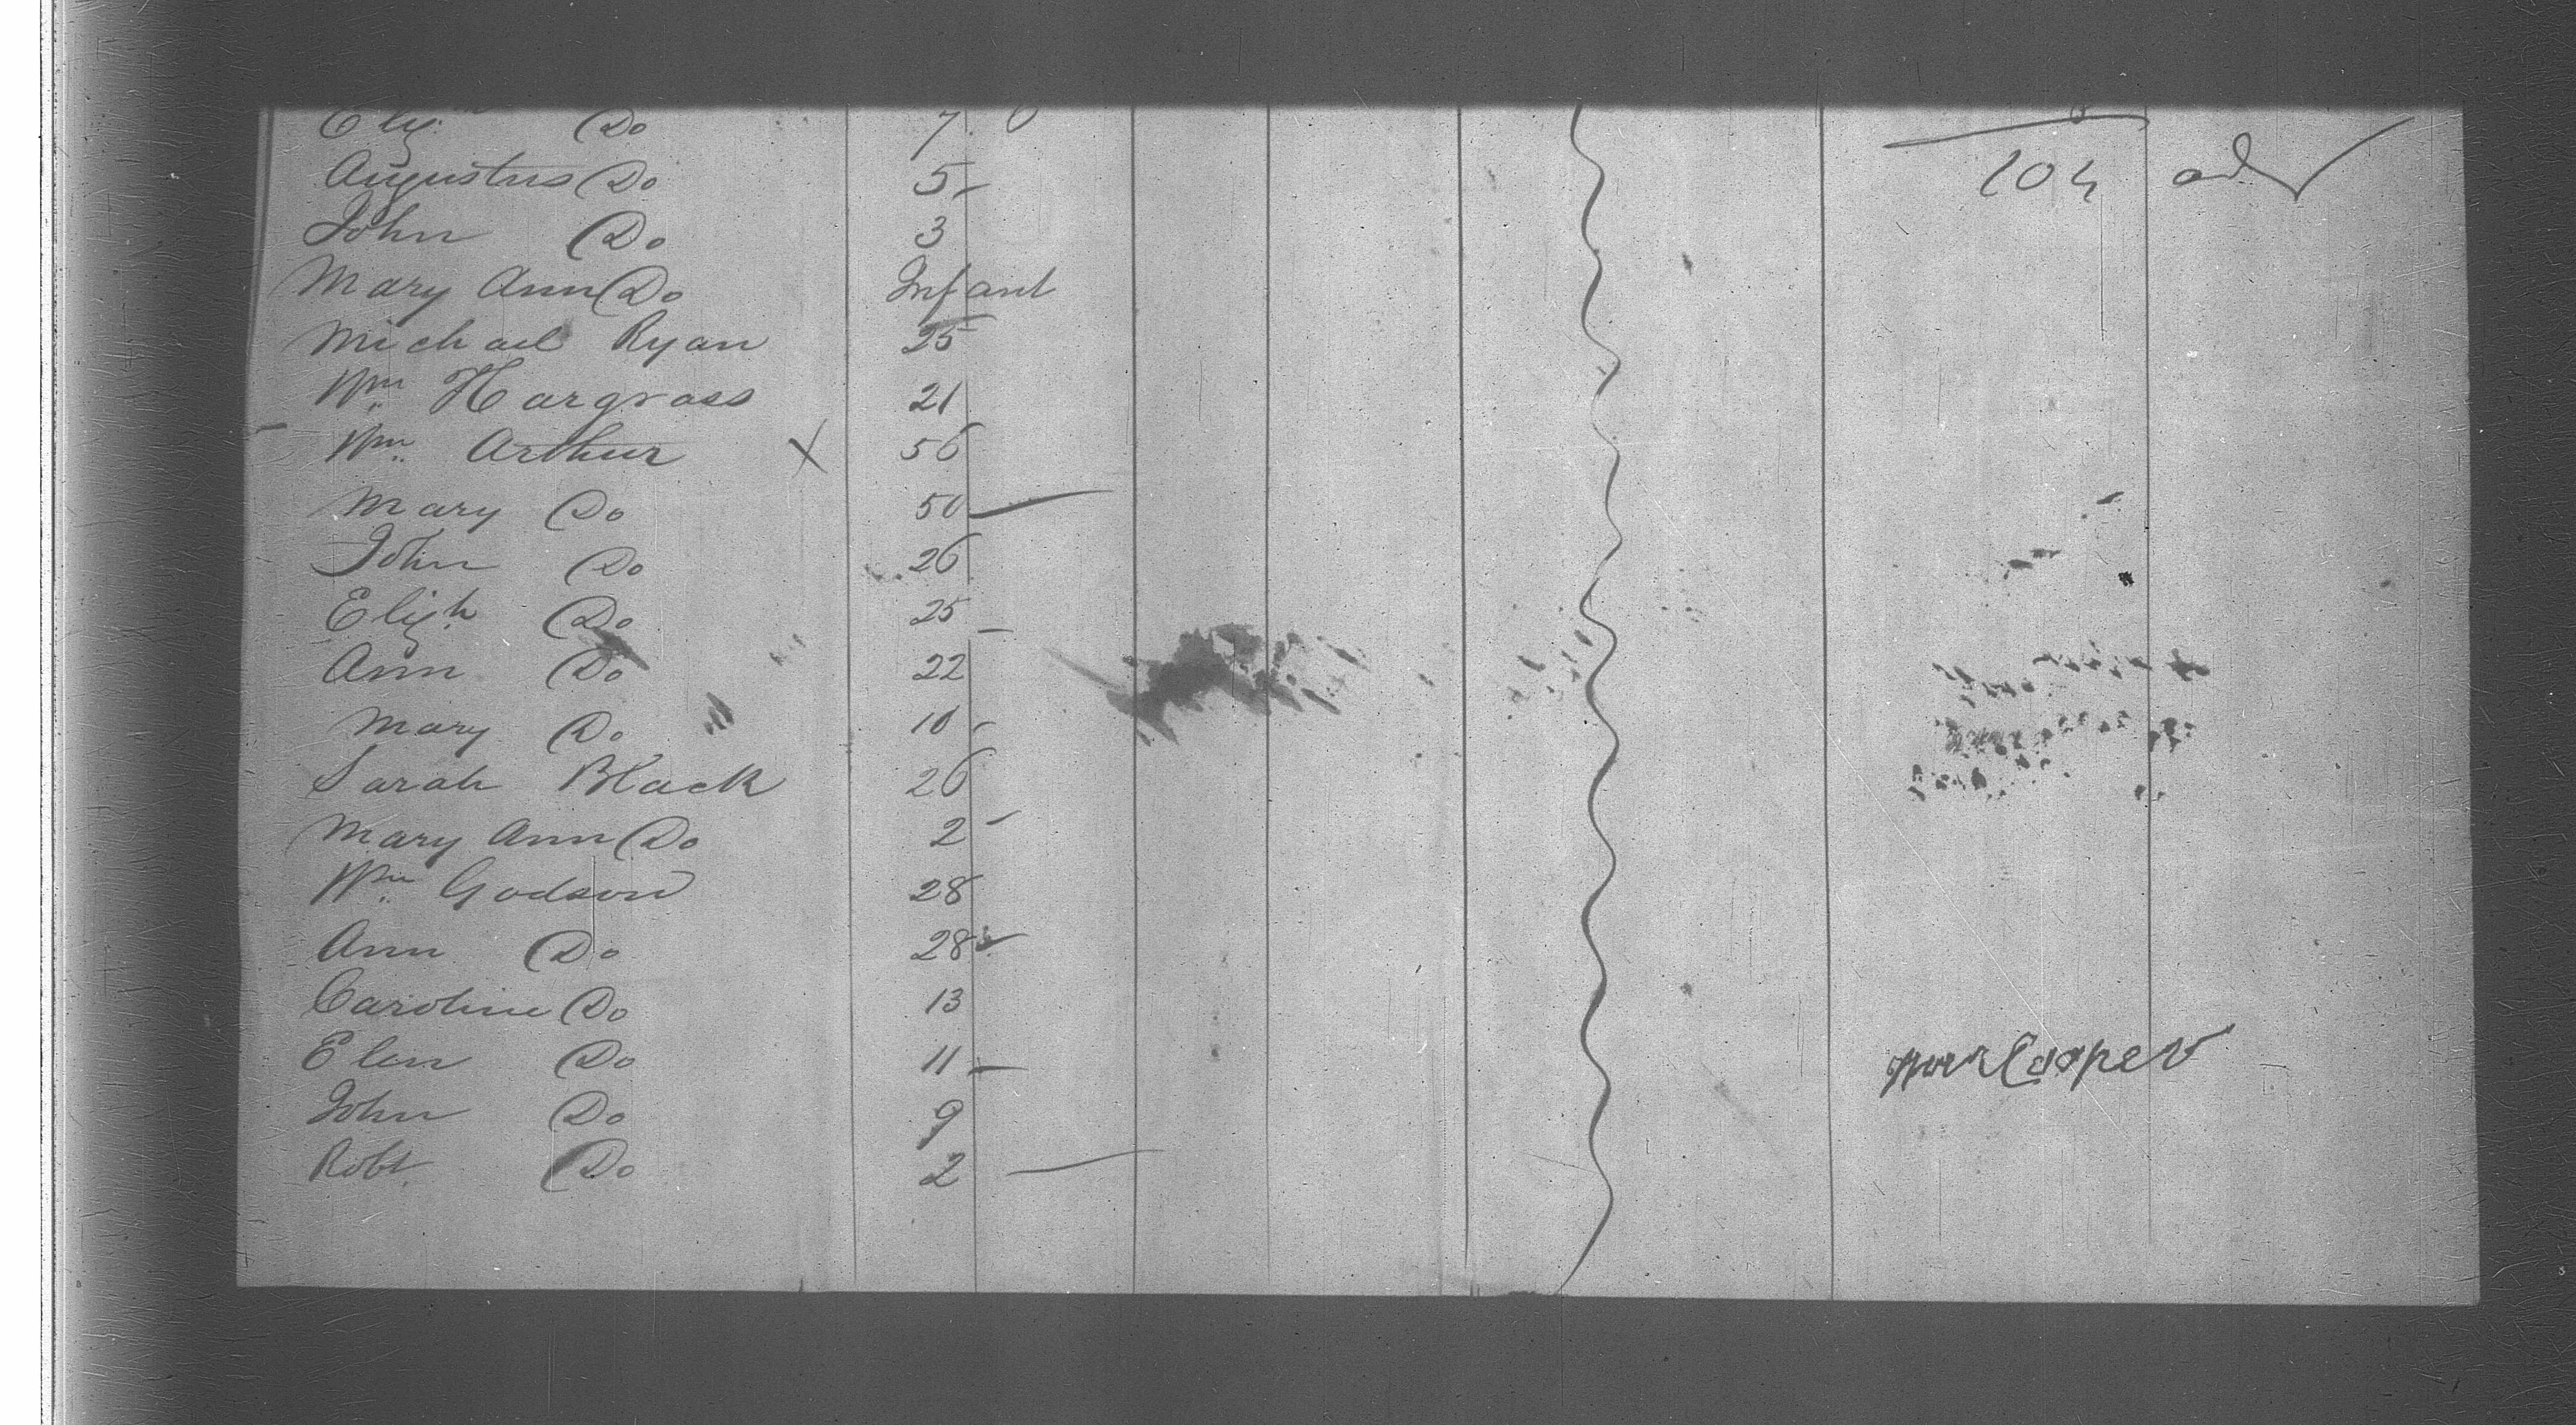 Eliz. Do 7
Augustus Do 5 104 ad
John Do 3
Mary Ann Do Infant
Michael Ryan 25
Wm Hargrass 21
Wm Arthur X 56
Mary Do 50
John Do 26
Elizh Do 25
Ann Do 22
Mary Do 10
Sarah Black 26
Mary Ann Do 2
Wm Godson 28
Ann Do 28
Caroline Do 13
Elen Do 11 Cooper
John Do 9
Robt. Do 2